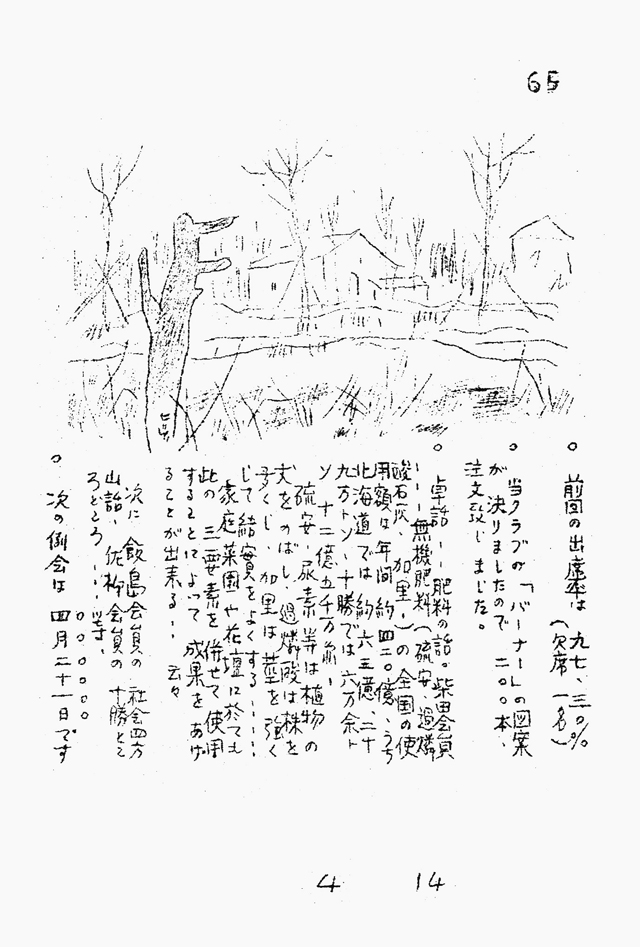 65
○ 前回の出席率は 九七、三〇%
(欠席 一名)
○ 当クラブの「バーナー」の図案
が決りましたので 二〇〇本、
注文致しました。
○ 卓話 … 肥料の話。柴田会員
… 無機肥料(硫安、過燐
酸石灰、加里…)の全国の使
用額は年間約四二〇億、うち
北海道では約六三億、二十
九万トン、十勝では六万余ト
ン 十二億五千万余、
硫安、尿素等は植物の
丈をのばし、過燐酸は株を
多くし、加里は茎を強く
して結實をよくする……
家庭菜園や花壇に於ても
此の三要素を併せて使用
することによって 成果をあげ
ることが出来る… 云々
次に 飯島会員の 社会四方
山話、佐柳会員の 十勝とこ
ろどころ
○○○○○○○
○ 次の例会は 四月二十一日です
4 14